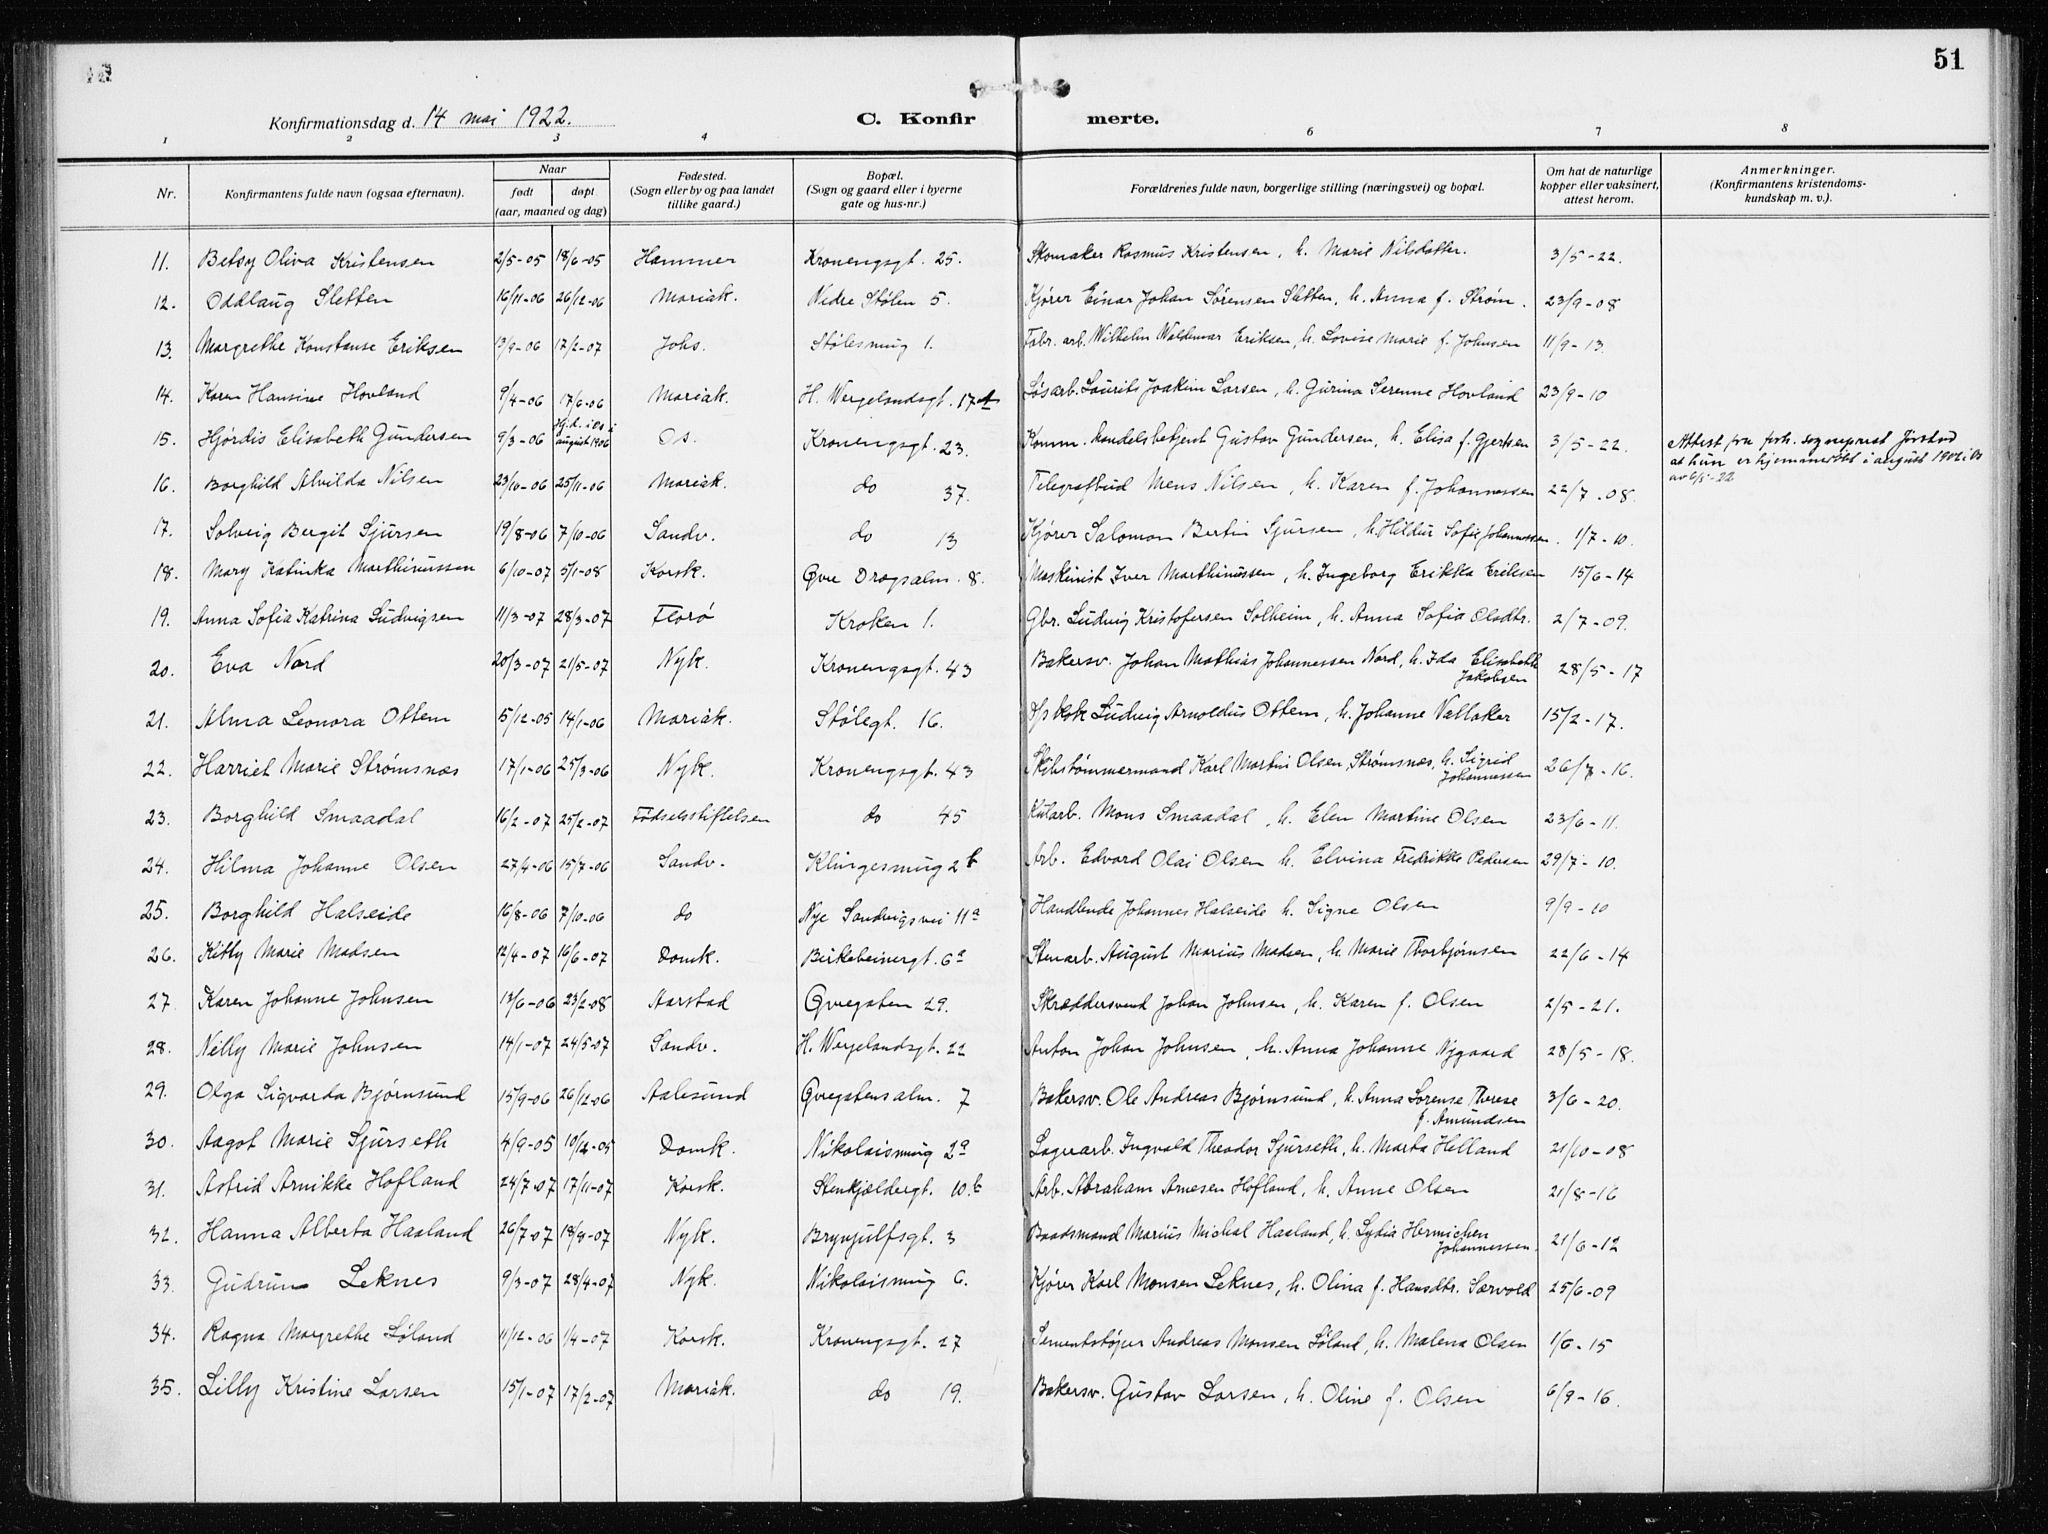 51
Konfirmationsdag d. 14 mai 1922. C. Konfir merte.
1 2 3 4 6 7 8
Nr. Konfirmantens fulde navn (ogsaa efternavn). Naar født døpt (aar, maaned og dag) Fødested. (Sogn eller by og paa landet tillike gaard.) Bopæl. (Sogn og gaard eller i byerne gate og hus-nr.) Forældrenes fulde navn, borgerlige stilling (næringsvei) og bopæl. Om hat de naturlige kopper eller vaksinert, attest herom. Anmerkninger. (Konfirmantens kristendoms-kundskap m. v.).
11. Betsy Oliva Kristensen 2/5-05 18/6-05 Hammer Kronengsgt. 25. Skomaker Rasmus Kristensen, h. Marie Nilsdatter. 3/5-22.
12. Oddlaug Sletten 16/11-06 26/12-06 Mariak. Nedre Stølen 5. Kjører Einar Johan Sørensen Sletten, h. Anna f. Strøm. 23/9-08
13. Margrethe Konstanse Eriksen 13/9-06 17/2-07 Johs. Stølesmug 1. Fabr. arb. Wilhelm Waldemar Eriksen, h. Lovise Marie f. Johnsen 11/9-13.
14. Karen Hansine Hovland 9/4-06 17/6-06 Mariak. H. Wergelandsgt. 17A Løsarb. Laurits Joakim Larsen, h. Gurina Serenne Hovland 23/9-10
15. Hjørdis Elisabeth Gundersen 9/3-06 Hj.d. i Os i august 1906 Os. Kronengsgt. 23. Komm. Handelsbetjent Gustav Gundersen, h. Elisa f. Gjertsen 3/5-22. Attest fra forh. sogneprest Jørstad at hun er hjemmedøbt i august 1906 i Os av 6/5-22
16. Borghild Alvilda Nilsen 23/10-06 25/11-06 Mariak. do 37. Telegrafbud Mens Nilsen, h. Karen f. Johannessen 22/7-08.
17. Solveig Bergit Sjursen 19/8-06 7/10-06 Sandv. do 13 Kjører Salomon Bertin Sjursen, h. Hildur Sofie Johannessen. 1/7-10.
18. Mary Katinka Marthinussen 6/10-07 5/1-08 Korsk. Øvre Dragsalm. 8. Maskinist Iver Marthinussen, h. Ingeborg Erikka Eriksen 15/6-14
19. Anna Sofia Katrina Ludvigsen 11/3-07 28/3-07 Florø Kroken 1. Gbr. Ludvig Kristofersen Solheim, h. Anna Sofia Olsdtr. 2/7-09.
20. Eva Nord 20/3-07 21/5-07 Nyk. Kronengsgt. 43 Bakersv. Johan Mathias Johannessen Nord, h. Ida Elisabeth Jakobsen 28/5-17
21. Alma Leonora Ottem 5/12-05 14/1-06 Mariak. Stølegt. 16. Ludvig Arnoldus Ottem, h. Johanne Vallaker 15/2-17.
22. Harriet Marie Strømsnæs 17/1-06 25/3-06 Nyk. Kronengsgt. 43 Skibstømmermand Karl Martin Olsen Strømsnes, h. Sigrid Johannessen 26/7-16.
23. Borghild Smaadal 16/2-07 25/2-07 Fødselsstiftelsen do 45 Kularb. Mons Smaadal, h. Elen Martine Olsen 23/6-11.
24. Hilma Johanne Olsen 27/4-06 15/7-06 Sandv. Klingesmug 2b Arb. Edvard Olai Olsen h. Elvina Fredrikke Pedersen 29/7-10.
25. Borghild Halseide 16/8-06 7/10-06 do Nye Sandvigsvei 11a Handlende Johannes Halseide h. Signe Olsen 9/9-10
26. Kitty Marie Madsen 12/4-07 16/6-07 Domk. Birkebeinergt. 6a Stenarb. August Marius Madsen, h. Marie Thorbjørnsen 22/6-14
27. Karen Johanne Johnsen 13/6-06 23/2-08 Aarstad Øvregaten 29. Skræddersvend Johan Johnsen, h. Karen f. Olsen 2/5-21.
28. Nelly Marie Johnsen 14/1-07 24/5-07 Sandv. H. Wergelandsgt. 22 Anton Johan Johnsen, h. Anna Johanne Nygaard 28/5-18.
29. Olga Sigvarda Bjørnsund 15/9-06 26/12-06 Aalesund Øvregatensalm. 7 Bakersv. Ole Andreas Bjørnsund, h. Anna Sorense Therese f. Amundsen 3/6-20.
30. Aagot Marie Sjurseth 4/9-05 10/12-05 Domk. Nikolaismug 2a Lagerarb. Ingvald Theodor Sjurseth, h. Marta Helland 21/10-08
31. Astrid Arnikke Hofland 24/7-07 17/11-07 Korsk. Stenkjeldergt. 10.b Arb. Abraham Arnesen Hofland, h. Anne Olsen 21/8-16
32. Hanna Alberta Haaland 26/7-07 18/9-07 Nyk. Brynjulfsgt. 3 Baadsmand Marius Michal Haaland, h. Lydia Hermichen Johannessen. 21/6-12
33. Gudrun Leknes 9/3-07 28/4-07 Nyk. Nikolaismug 6. Kjører Karl Monsen Leknes, h. Olina f. Hansdtr. Særvold 25/6-09
34. Ragna Margrethe Søland 11/12-06 1/4-07 Korsk. Kronengsgt. 27 Sementstøper Andreas Monsen Søland, h. Malena Olsen 1/6-15
35. Lilly Kristine Larsen 15/1-07 17/2-07 Mariak. do 19. Bakersv. Gustav Larsen, h. Oline f. Olsen 6/9-16.